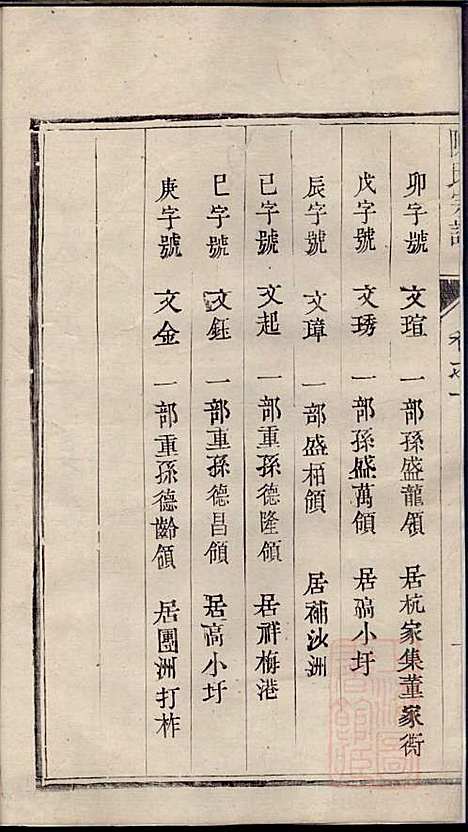 陳氏宗譜
卯字號 文瑄 一部孫盛龍領 居杭家集董家衖
戊字號 文琇 一部孫盛萬領 居高小圩
辰字號 文璋 一部盛栢領 居補沙洲
己字號 文起 一部重孫德隆領 居祥梅港
巳字號 文鈺 一部重孫德昌領 居高小圩
庚字號 文金 一部重孫德齡領 居團洲打柞